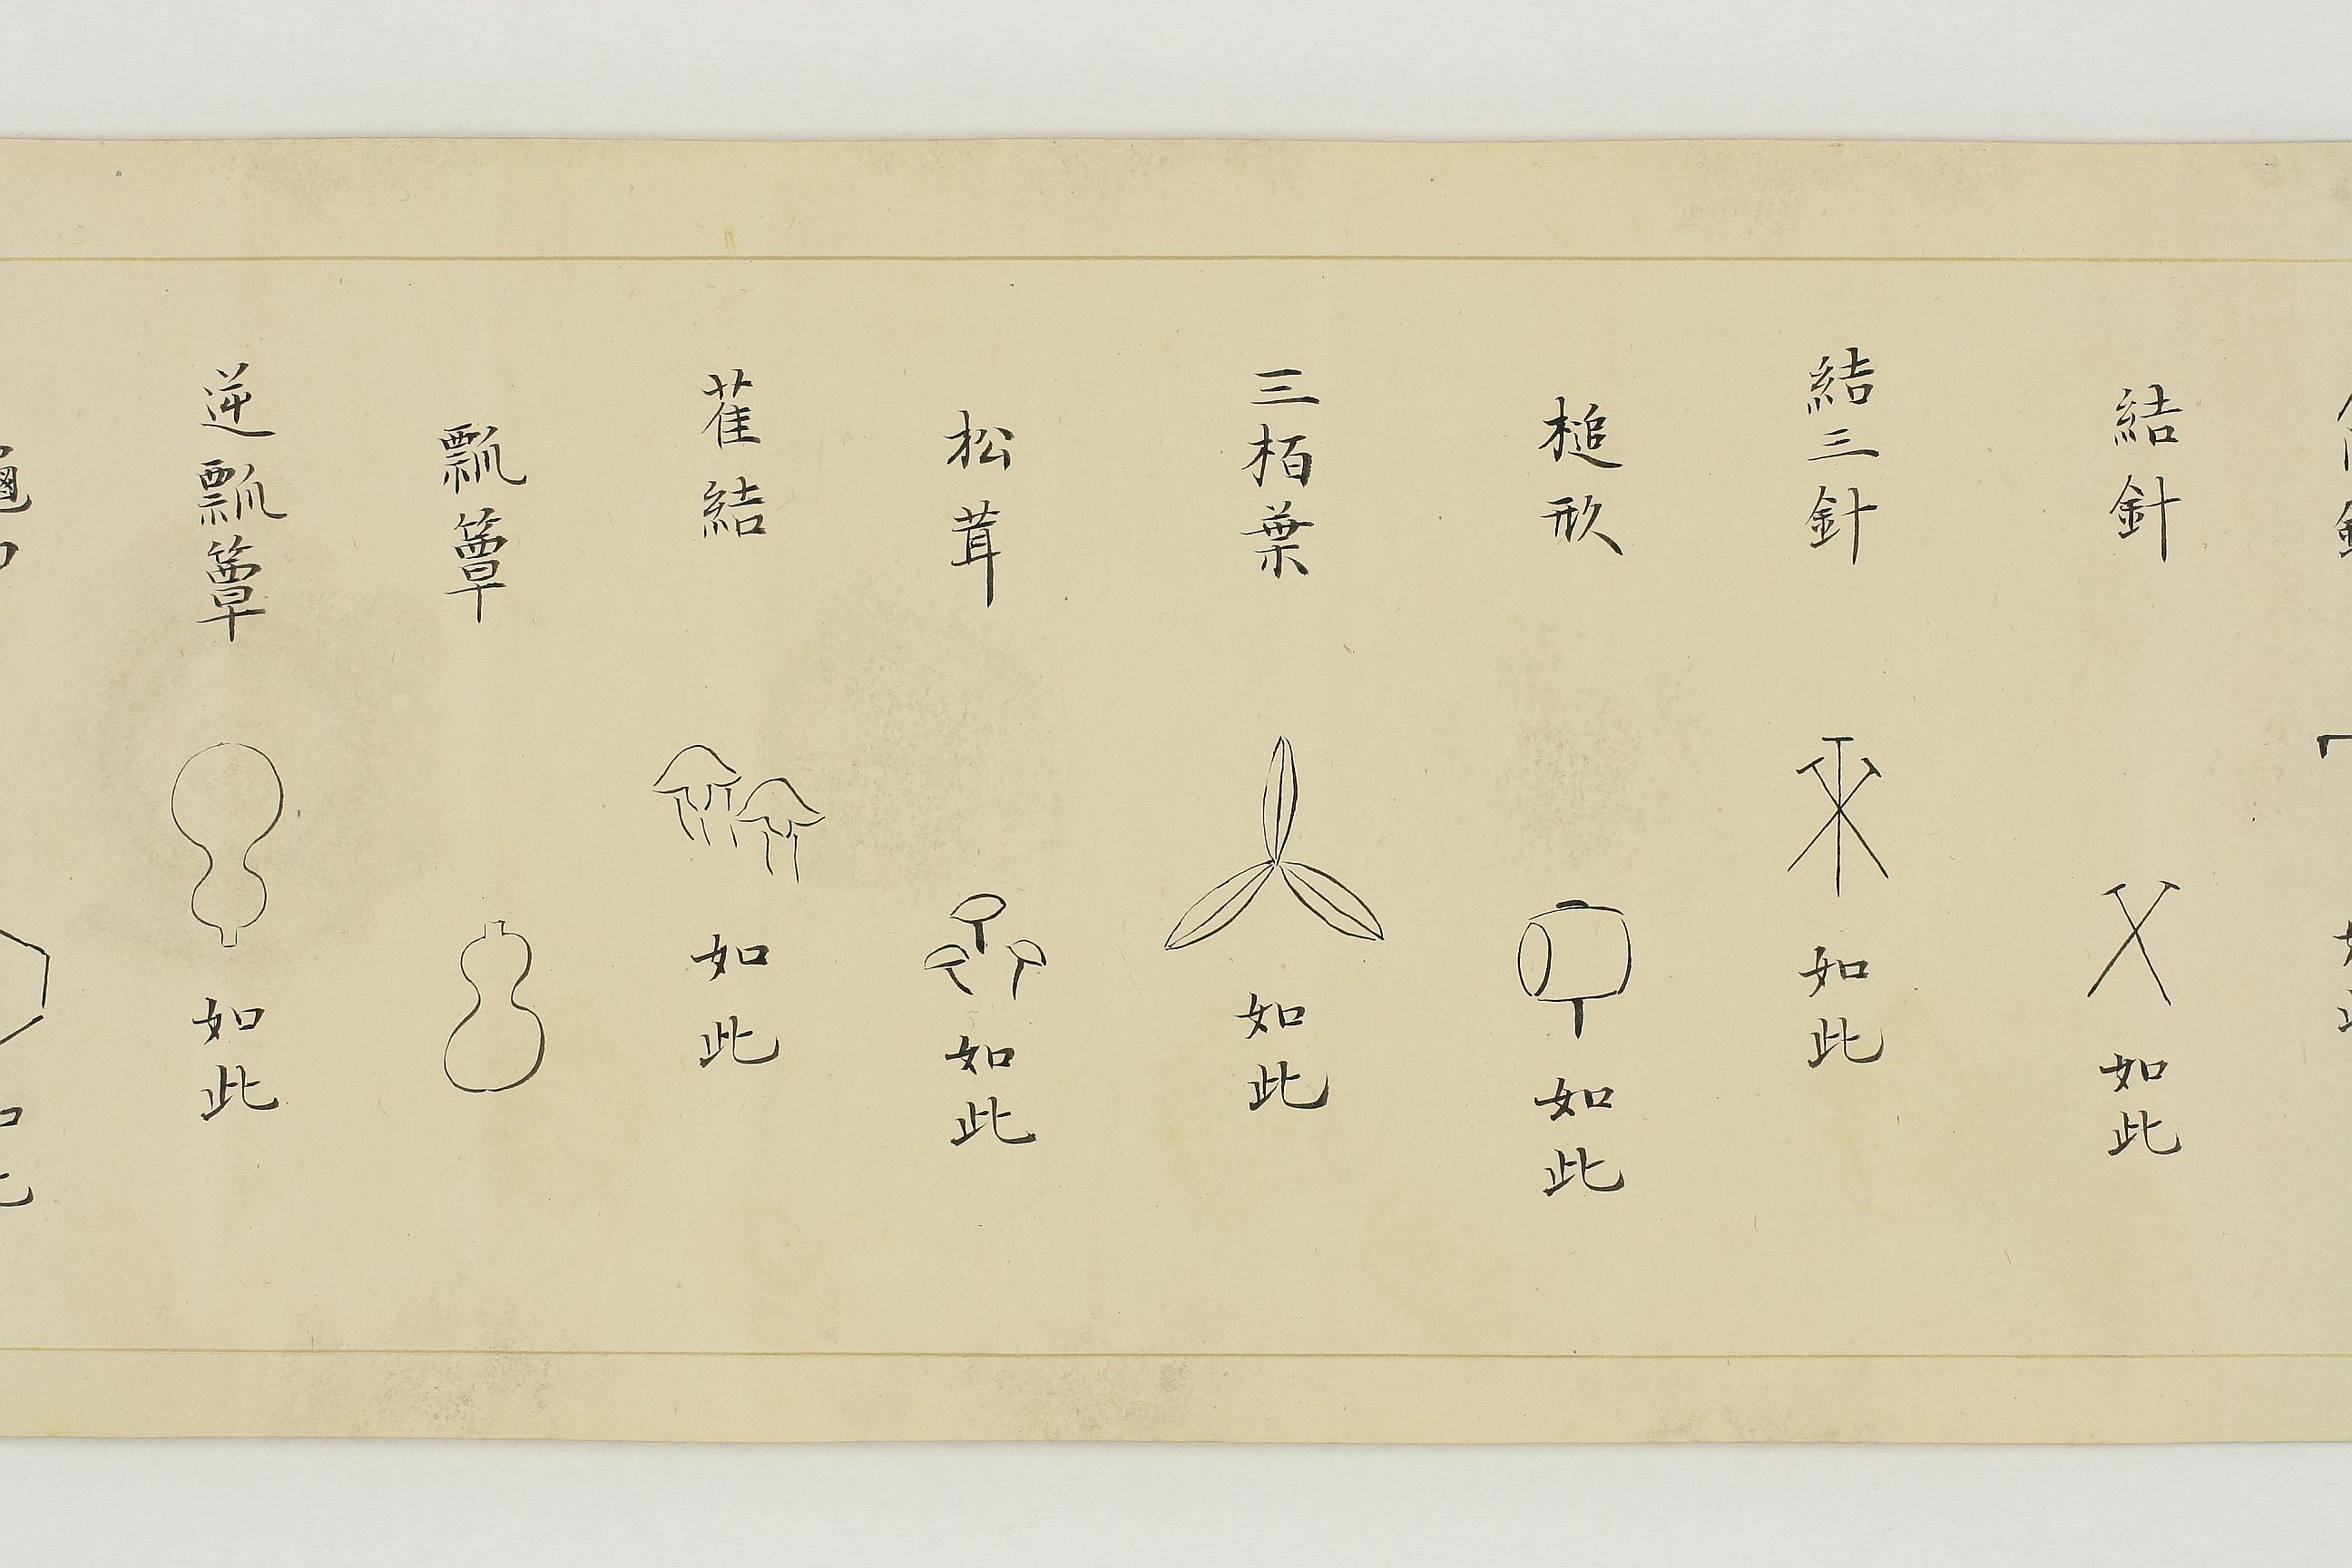 結針
如此
結三針
如此
槌形
如此
三栢葉
如此
松茸
如此
萑結
如此
瓢簟
逆瓢簟
如此